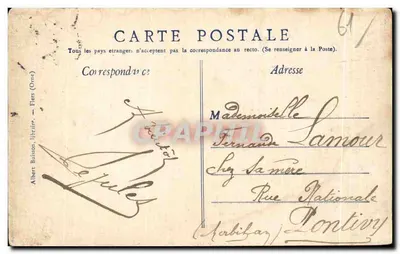 61
CARTE POSTALE
Tous les pays étrangers n'acceptent pas la correspondance au recto. (Se renseigner à la Poste).
Correspondance
Adresse
Albert Buisson, libraire. — Flers (Orne)
A bientôt
Jules
CPARAMA
Mademoiselle
Fernande Lamour
Chez sa mère
Rue Nationale
Pontivy
(Morbihan)